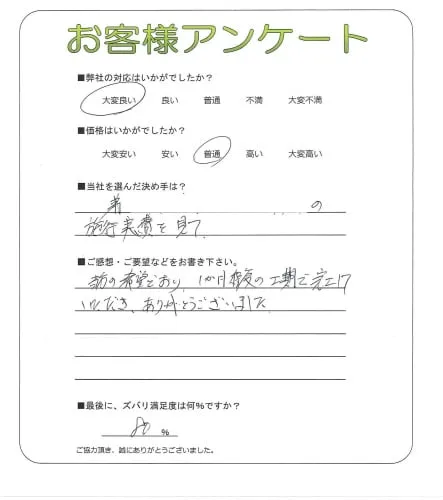 お客様アンケート
■弊社の対応はいかがでしたか?
大変良い 良い 普通 不満 大変不満
■価格はいかがでしたか?
大変安い 安い 普通 高い 大変高い
■当社を選んだ決め手は?
弟 の
施行実費を見て
■ご感想・ご要望などをお書き下さい。
の希望どおり、1か月程度の工期で完工
いただき、ありがとうございました
■最後に、ズバリ満足度は何%ですか?
80 %
ご協力頂き、誠にありがとうございました。